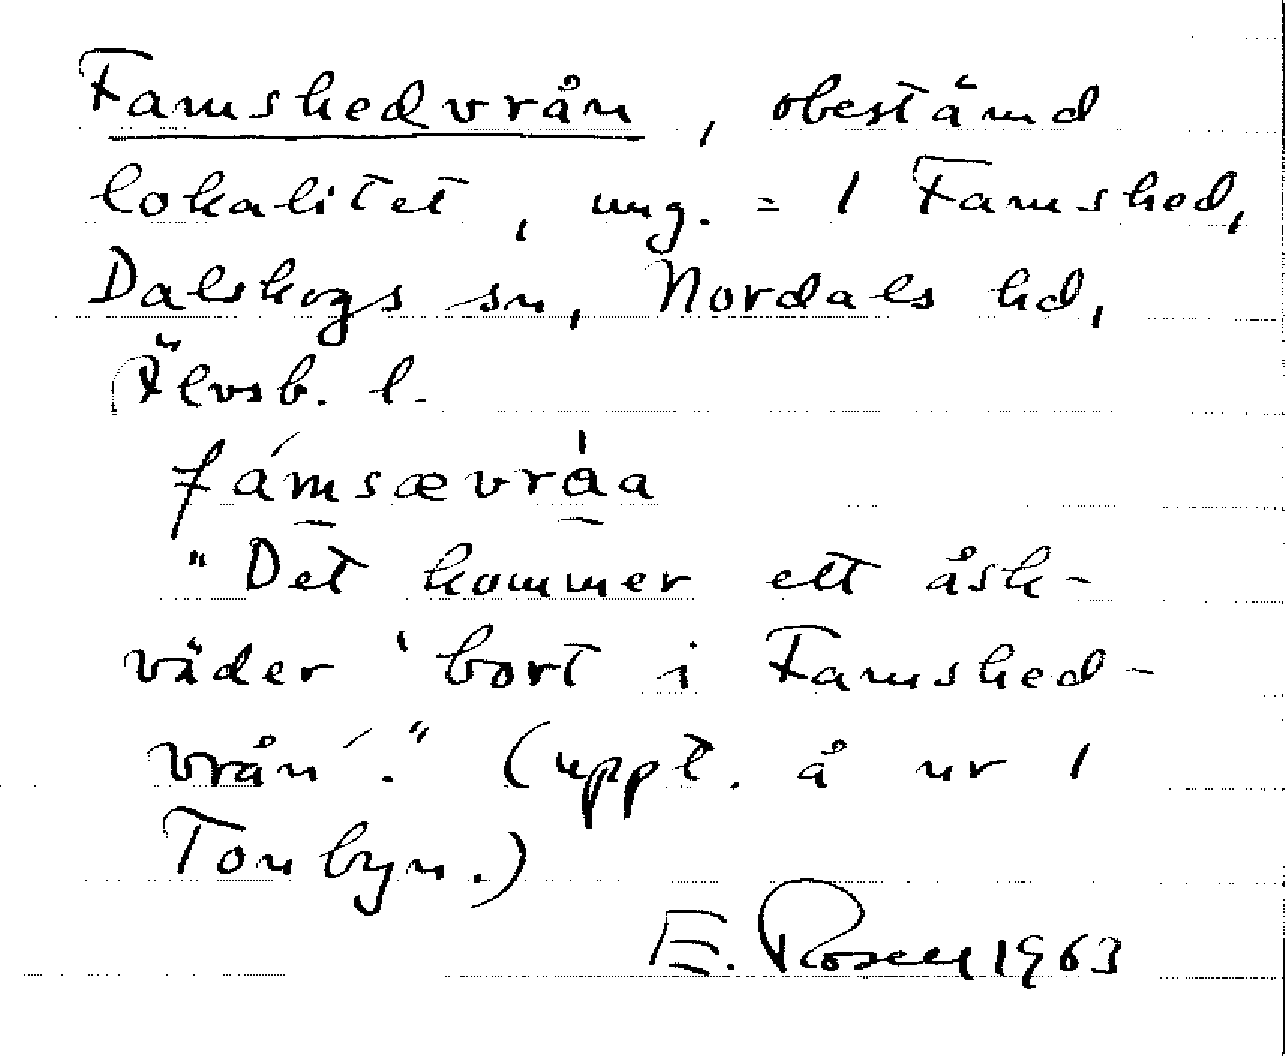 Famshedvrån, obestämd
lokalitet, ung. = 1 Famshed,
Dalskogs sn, Nordals hd,
Älvsb. l.
fámsævråa
"Det kommer ett åsk-
väder 'bort i Famshed-
vrån'." (uppt. å nr 1
Tonbyn.)
E. Rosell 1963